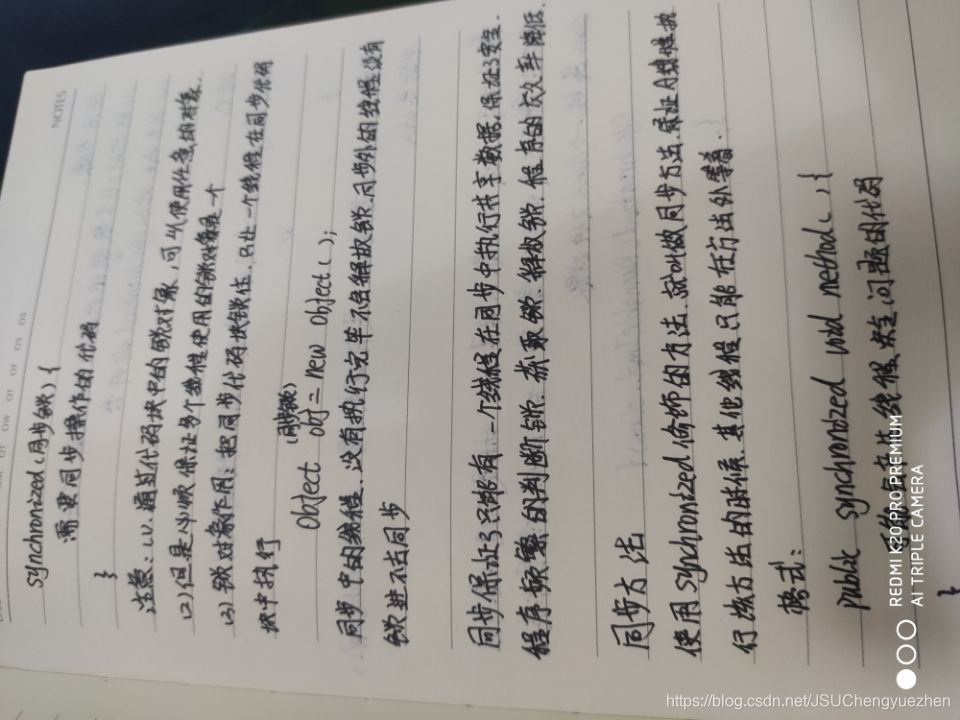 NOTES
synchronized(同步锁){
需要同步操作的代码
}
注意:(1).通过代码块中的锁对象,可以使用任意的对象.
(2)但是必须保证多个线程使用的锁对象是一个
(3)锁对象作用:把同步代码块锁住.只让一个线程在同步代码
块中执行
(同步锁)
Object obj = new Object();
同步中的线程、没有执行完毕不会释放锁.同步外的线程没有
锁进不去同步
同步保证了只能有一个线程在同步中执行共享数据.保证了安全.
程序频繁的判断锁.获取锁.释放锁.程序的效率降低.
同步方法
使用synchronized修饰的方法.就叫做同步方法.保证A线程执
行该方法的时候.其他线程只能在方法外等着.
格式:
public synchronized void method(){
线程安全问题的代码
}
REDMI K20 PRO PREMIUM
AI TRIPLE CAMERA
https://blog.csdn.net/JSUChengyuezhen